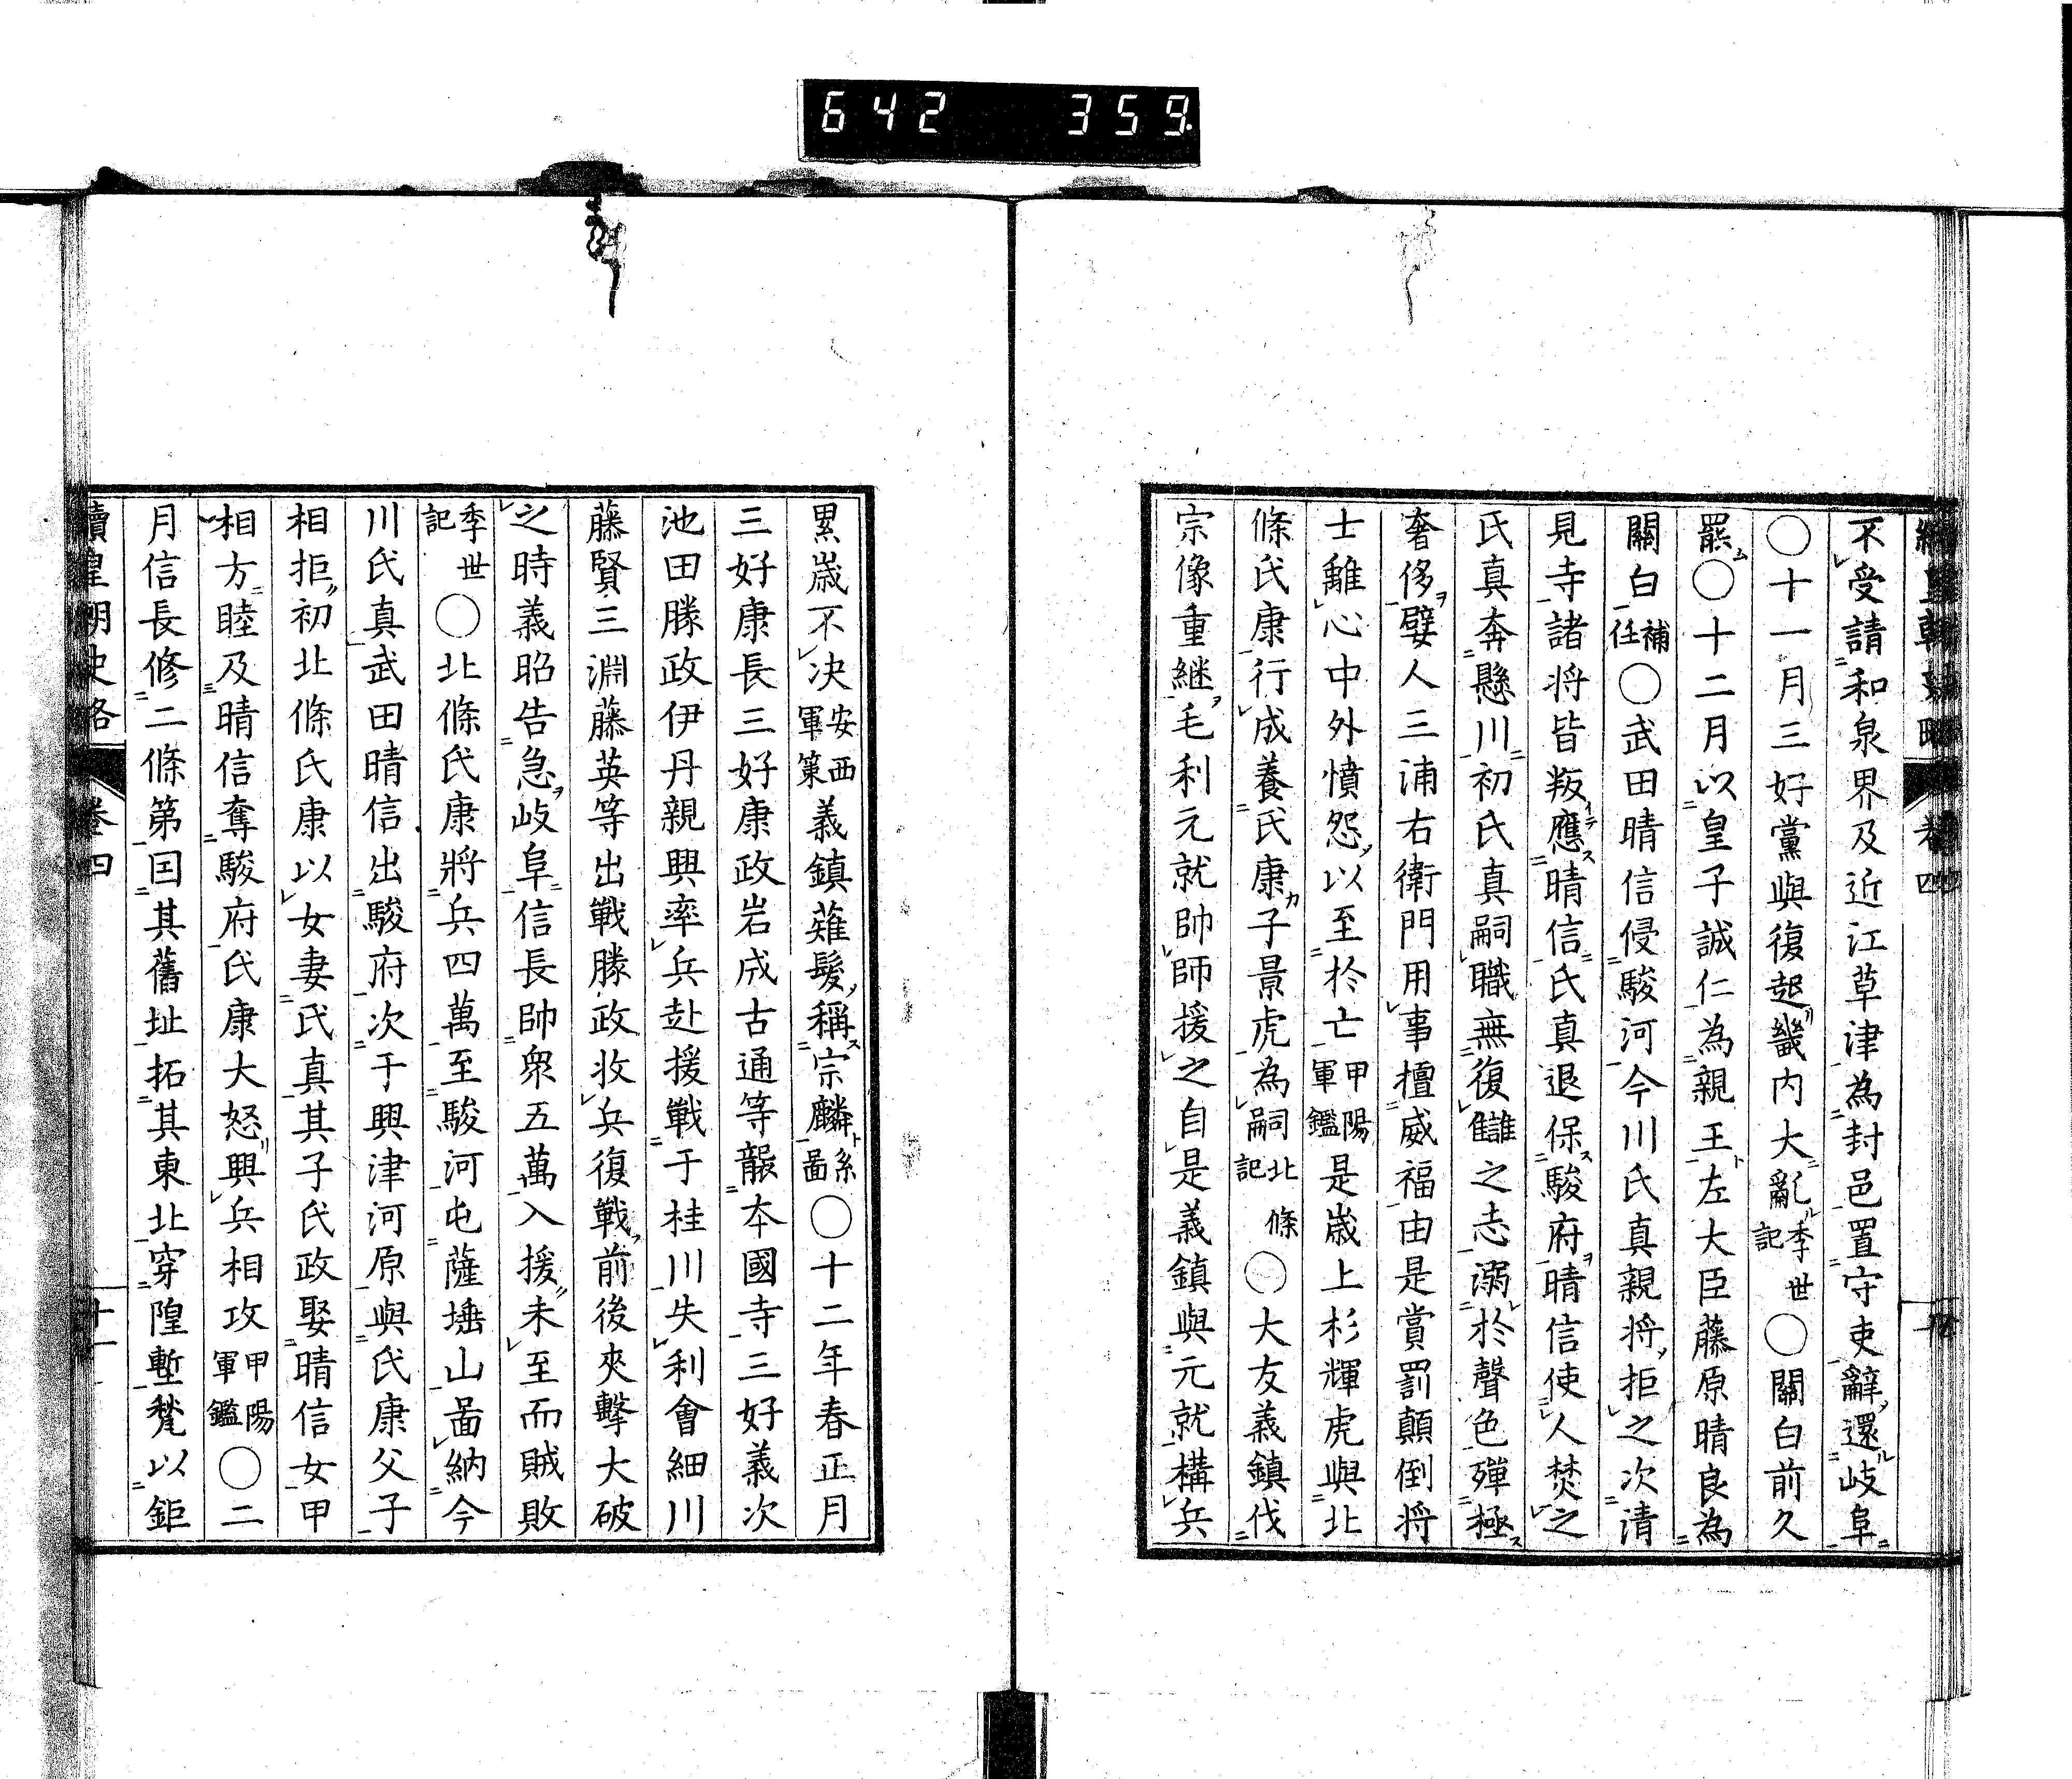 642 359
續皇朝史略 卷四
不受請和泉界及近江草津為封邑置守吏辭還岐阜
○十一月三好黨與復起畿内大亂季世記○關白前久
罷○十二月以皇子誠仁為親王左大臣藤原晴良為
關白補任○武田晴信侵駿河今川氏真親將拒之次清
見寺諸將皆叛應晴信氏真退保駿府晴信使人焚之
氏真奔懸川初氏真嗣職無復讎之志溺於聲色殫極
奢侈嬖人三浦右衛門用事擅威福由是賞罰顛倒將
士離心中外憤怨以至於亡甲陽軍鑑是歲上杉輝虎與北
條氏康行成養氏康子景虎為嗣北條記○大友義鎮伐
宗像重継毛利元就帥師援之自是義鎮與元就構兵
累歲不決安西軍策義鎮薙髮稱宗麟系圖○十二年春正月
三好康長三好康政岩成古通等襲本國寺三好義次
池田勝政伊丹親興率兵赴援戰于桂川失利會細川
藤賢三淵藤英等出戰勝政收兵復戰前後夾擊大破
之時義昭告急岐阜信長帥衆五萬入援未至而賊敗
季世記○北條氏康將兵四萬至駿河屯薩埵山啚納今
川氏真武田晴信出駿府次于興津河原與氏康父子
相拒初北條氏康以女妻氏真其子氏政娶晴信女甲
相方睦及晴信奪駿府氏康大怒興兵相攻甲陽軍鑑○二
月信長修二條第因其舊址拓其東北穿隍塹甃以鉅
續皇朝史略 卷四 十一